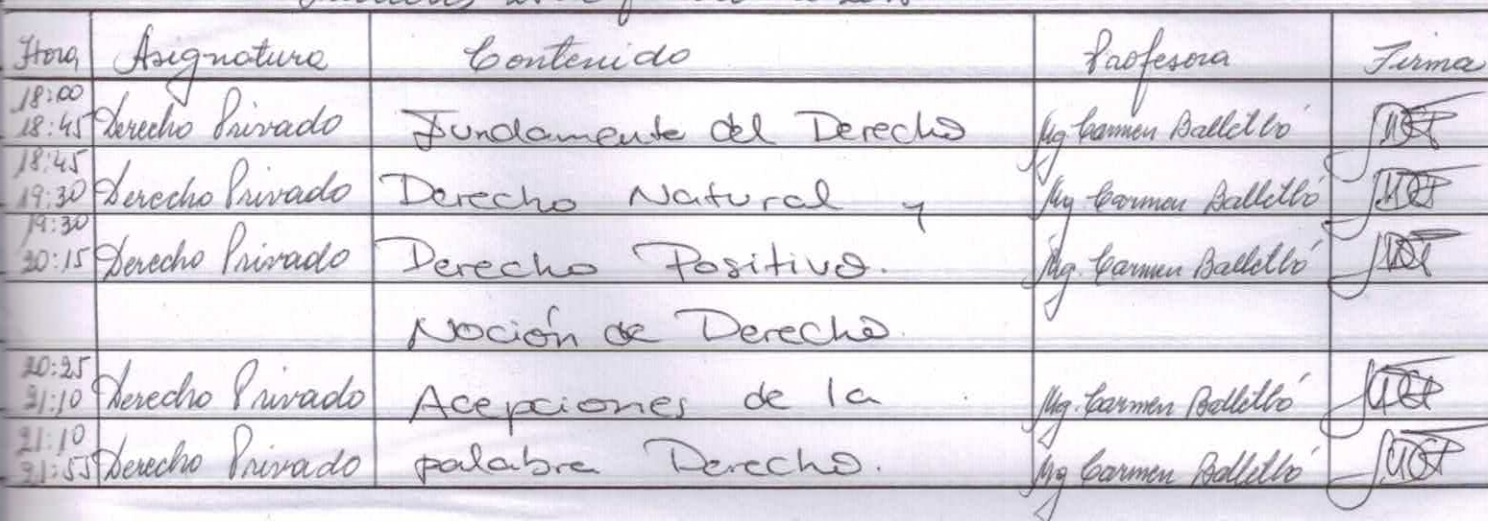 Hora Asignatura Contenido Profesora Firma
18:00
18:45 Derecho Privado Fundamente del Derecho Mg. Carmen Balletbó
18:45
19:30 Derecho Privado Derecho Natural y Mg. Carmen Balletbó
19:30
20:15 Derecho Privado Derecho Positivo. Mg. Carmen Balletbó
Noción de Derecho.
20:25
21:10 Derecho Privado Acepciones de la Mg. Carmen Balletbó
21:10
21:55 Derecho Privado palabra Derecho. Mg Carmen Balletbó